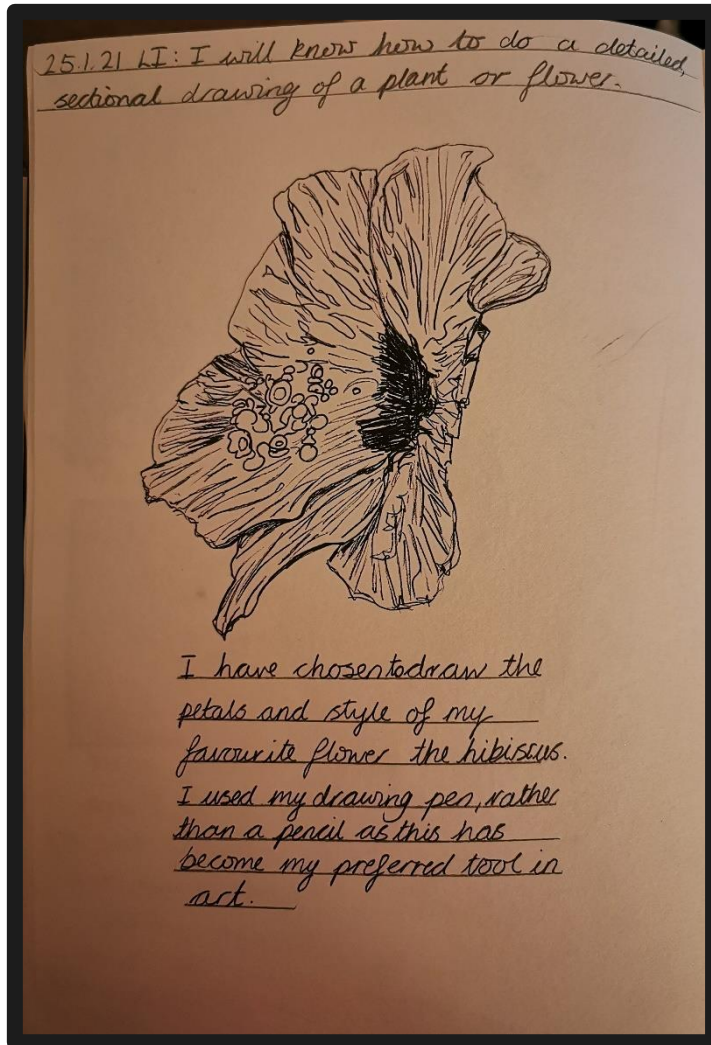 25.1.21 LI: I will know how to do a detailed,
sectional drawing of a plant or flower.
I have chosen to draw the
petals and style of my
favourite flower the hibiscus.
I used my drawing pen, rather
than a pencil as this has
become my preferred tool in
art.